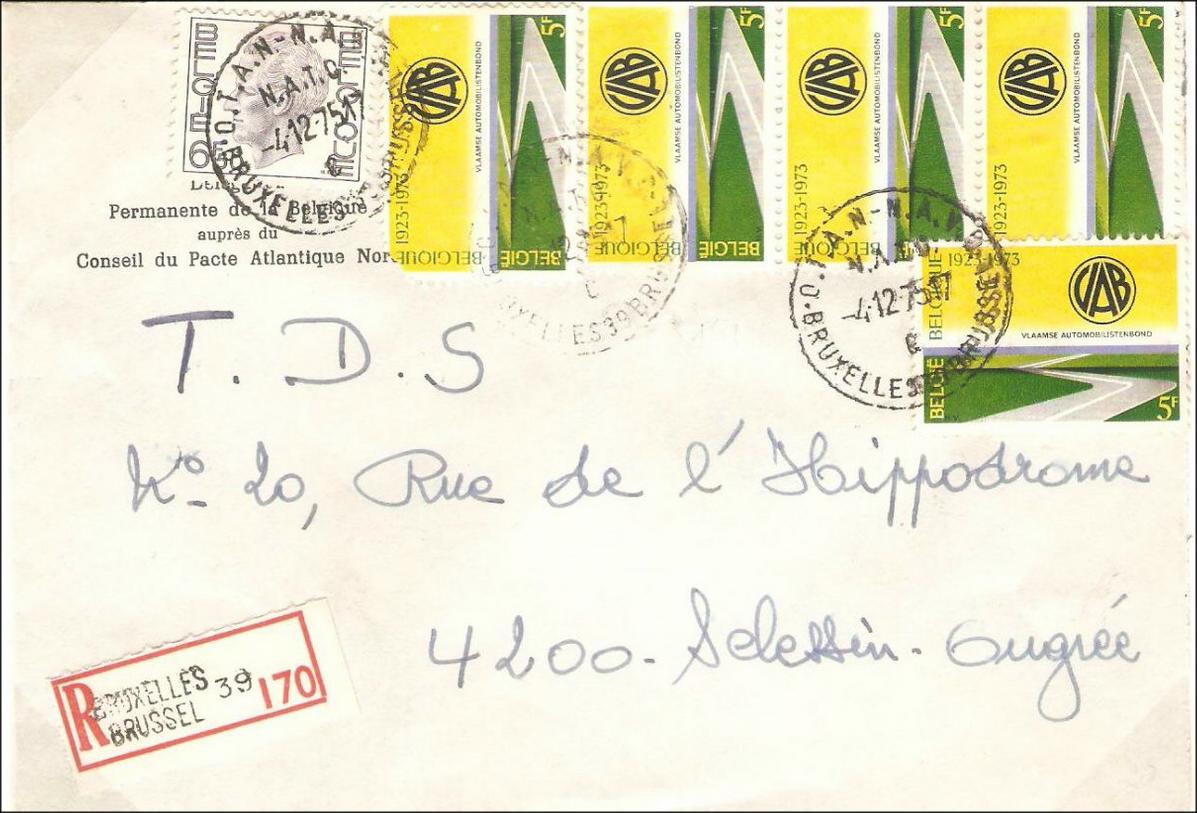 BELGIE BELGIQUE
O.T.A.N.-N.A.T.O.
N.A.T.O.
-4.12-75 17
BRUXELLES 39 BRUSSEL
VAB
VLAAMSE AUTOMOBILISTENBOND
1923-1973
BELGIQUE
BELGIË
5F
VAB
VLAAMSE AUTOMOBILISTENBOND
1923-1973
BELGIQUE
BELGIË
5F
VAB
VLAAMSE AUTOMOBILISTENBOND
1923-1973
BELGIQUE
BELGIË
5F
VAB
VLAAMSE AUTOMOBILISTENBOND
1923-1973
5F
Permanente de la Belgique
auprès du
Conseil du Pacte Atlantique Nor
BRUXELLES 39 BRUSSEL
-4.12-75 17
BRUXELLES 39 BRUSSEL
BELGIQUE
1923-1973
VAB
VLAAMSE AUTOMOBILISTENBOND
BELGIË
5F
T. D. S
No 20, Rue de l'Hippodrome
4200 - Sclessin - Ougrée
R BRUXELLES 39 170
BRUSSEL